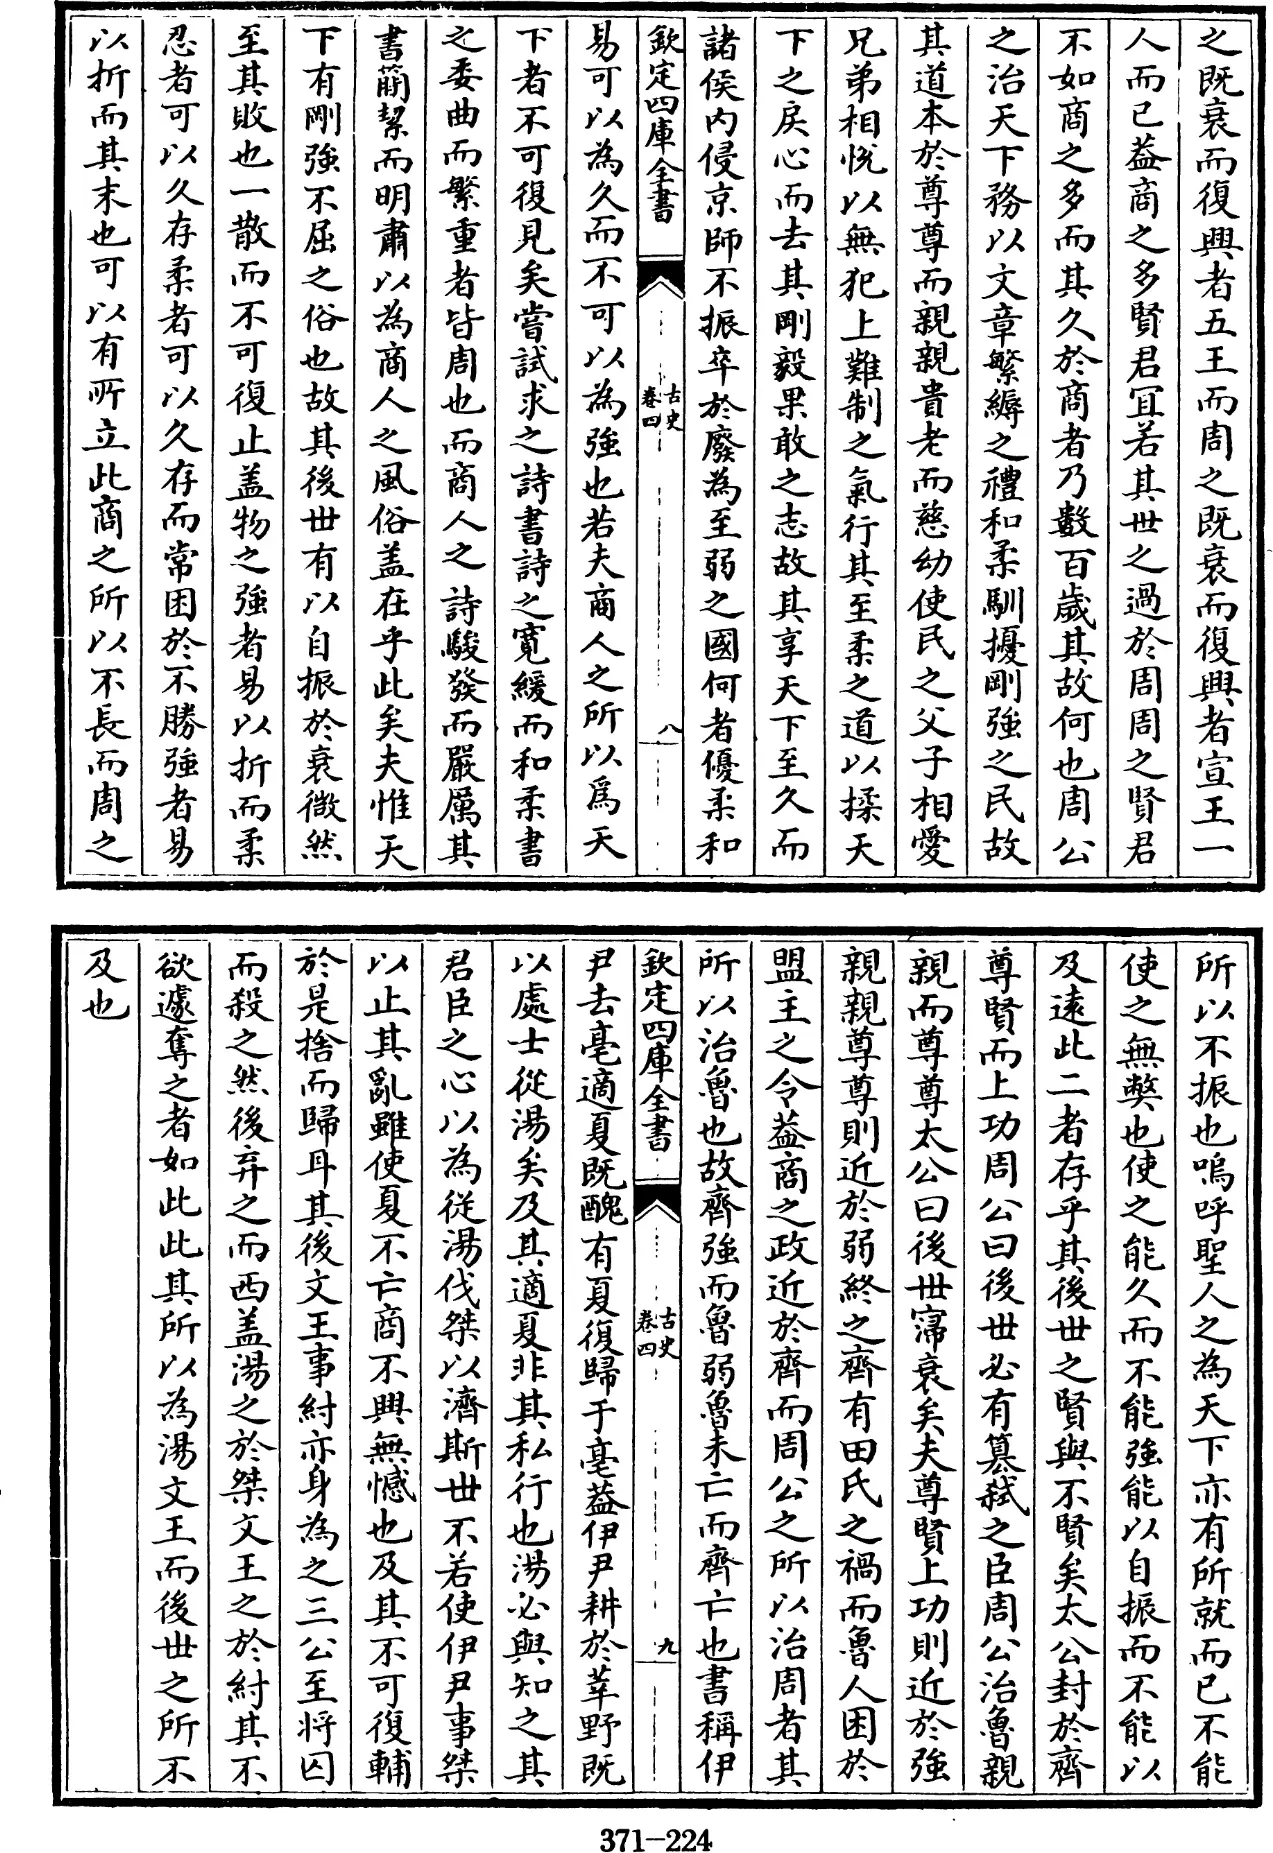 之既衰而復興者五王而周之既衰而復興者宣王一
人而已葢商之多賢君宜若其世之過於周周之賢君
不如商之多而其久於商者乃數百歲其故何也周公
之治天下務以文章繁縟之禮和柔馴擾剛強之民故
其道本於尊尊而親親貴老而慈幼使民之父子相愛
兄弟相悅以無犯上難制之氣行其至柔之道以揉天
下之戾心而去其剛毅果敢之志故其享天下至久而
諸侯内侵京師不振卒於廢為至弱之國何者優柔和
欽定四庫全書
古史
卷四
八
易可以為久而不可以為強也若夫商人之所以爲天
下者不可復見矣嘗試求之詩書詩之寛緩而和柔書
之委曲而繁重者皆周也而商人之詩駿發而嚴厲其
書簡絜而明肅以為商人之風俗葢在乎此矣夫惟天
下有剛強不屈之俗也故其後世有以自振於衰微然
至其敗也一散而不可復止葢物之強者易以折而柔
忍者可以久存柔者可以久存而常困於不勝強者易
以折而其末也可以有所立此商之所以不長而周之
所以不振也嗚呼聖人之為天下亦有所就而已不能
使之無弊也使之能久而不能強能以自振而不能以
及遠此二者存乎其後世之賢與不賢矣太公封於齊
尊賢而上功周公曰後世必有簒弑之臣周公治魯親
親而尊尊太公曰後世寖衰矣夫尊賢上功則近於強
親親尊尊則近於弱終之齊有田氏之禍而魯人困於
盟主之令葢商之政近於齊而周公之所以治周者其
所以治魯也故齊強而魯弱魯未亡而齊亡也書稱伊
欽定四庫全書
古史
卷四
九
尹去亳適夏既醜有夏復歸于亳葢伊尹耕於莘野既
以處士從湯矣及其適夏非其私行也湯必與知之其
君臣之心以為從湯伐桀以濟斯世不若使伊尹事桀
以止其亂雖使夏不亡商不興無憾也及其不可復輔
於是捨而歸耳其後文王事紂亦身為之三公至將囚
而殺之然後弃之而西葢湯之於桀文王之於紂其不
欲遽奪之者如此此其所以為湯文王而後世之所不
及也
371-224